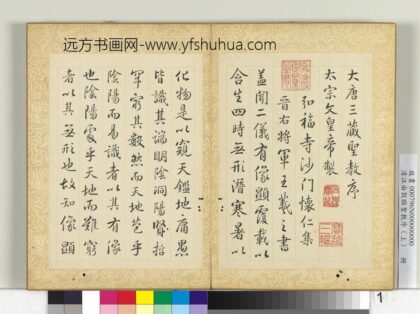 远方书画网-www.yfshuhua.com
大唐三藏聖教序
太宗文皇帝製
弘福寺沙門懷仁集
晉右將軍王羲之書
蓋聞二儀有像顯覆載以
含生四時無形潛寒暑以
化物是以窺天鑑地庸愚
皆識其端明陰洞陽賢哲
罕窮其數然而天地苞乎
陰陽而易識者以其有像
也陰陽處乎天地而難窮
者以其無形也故知像顯
1